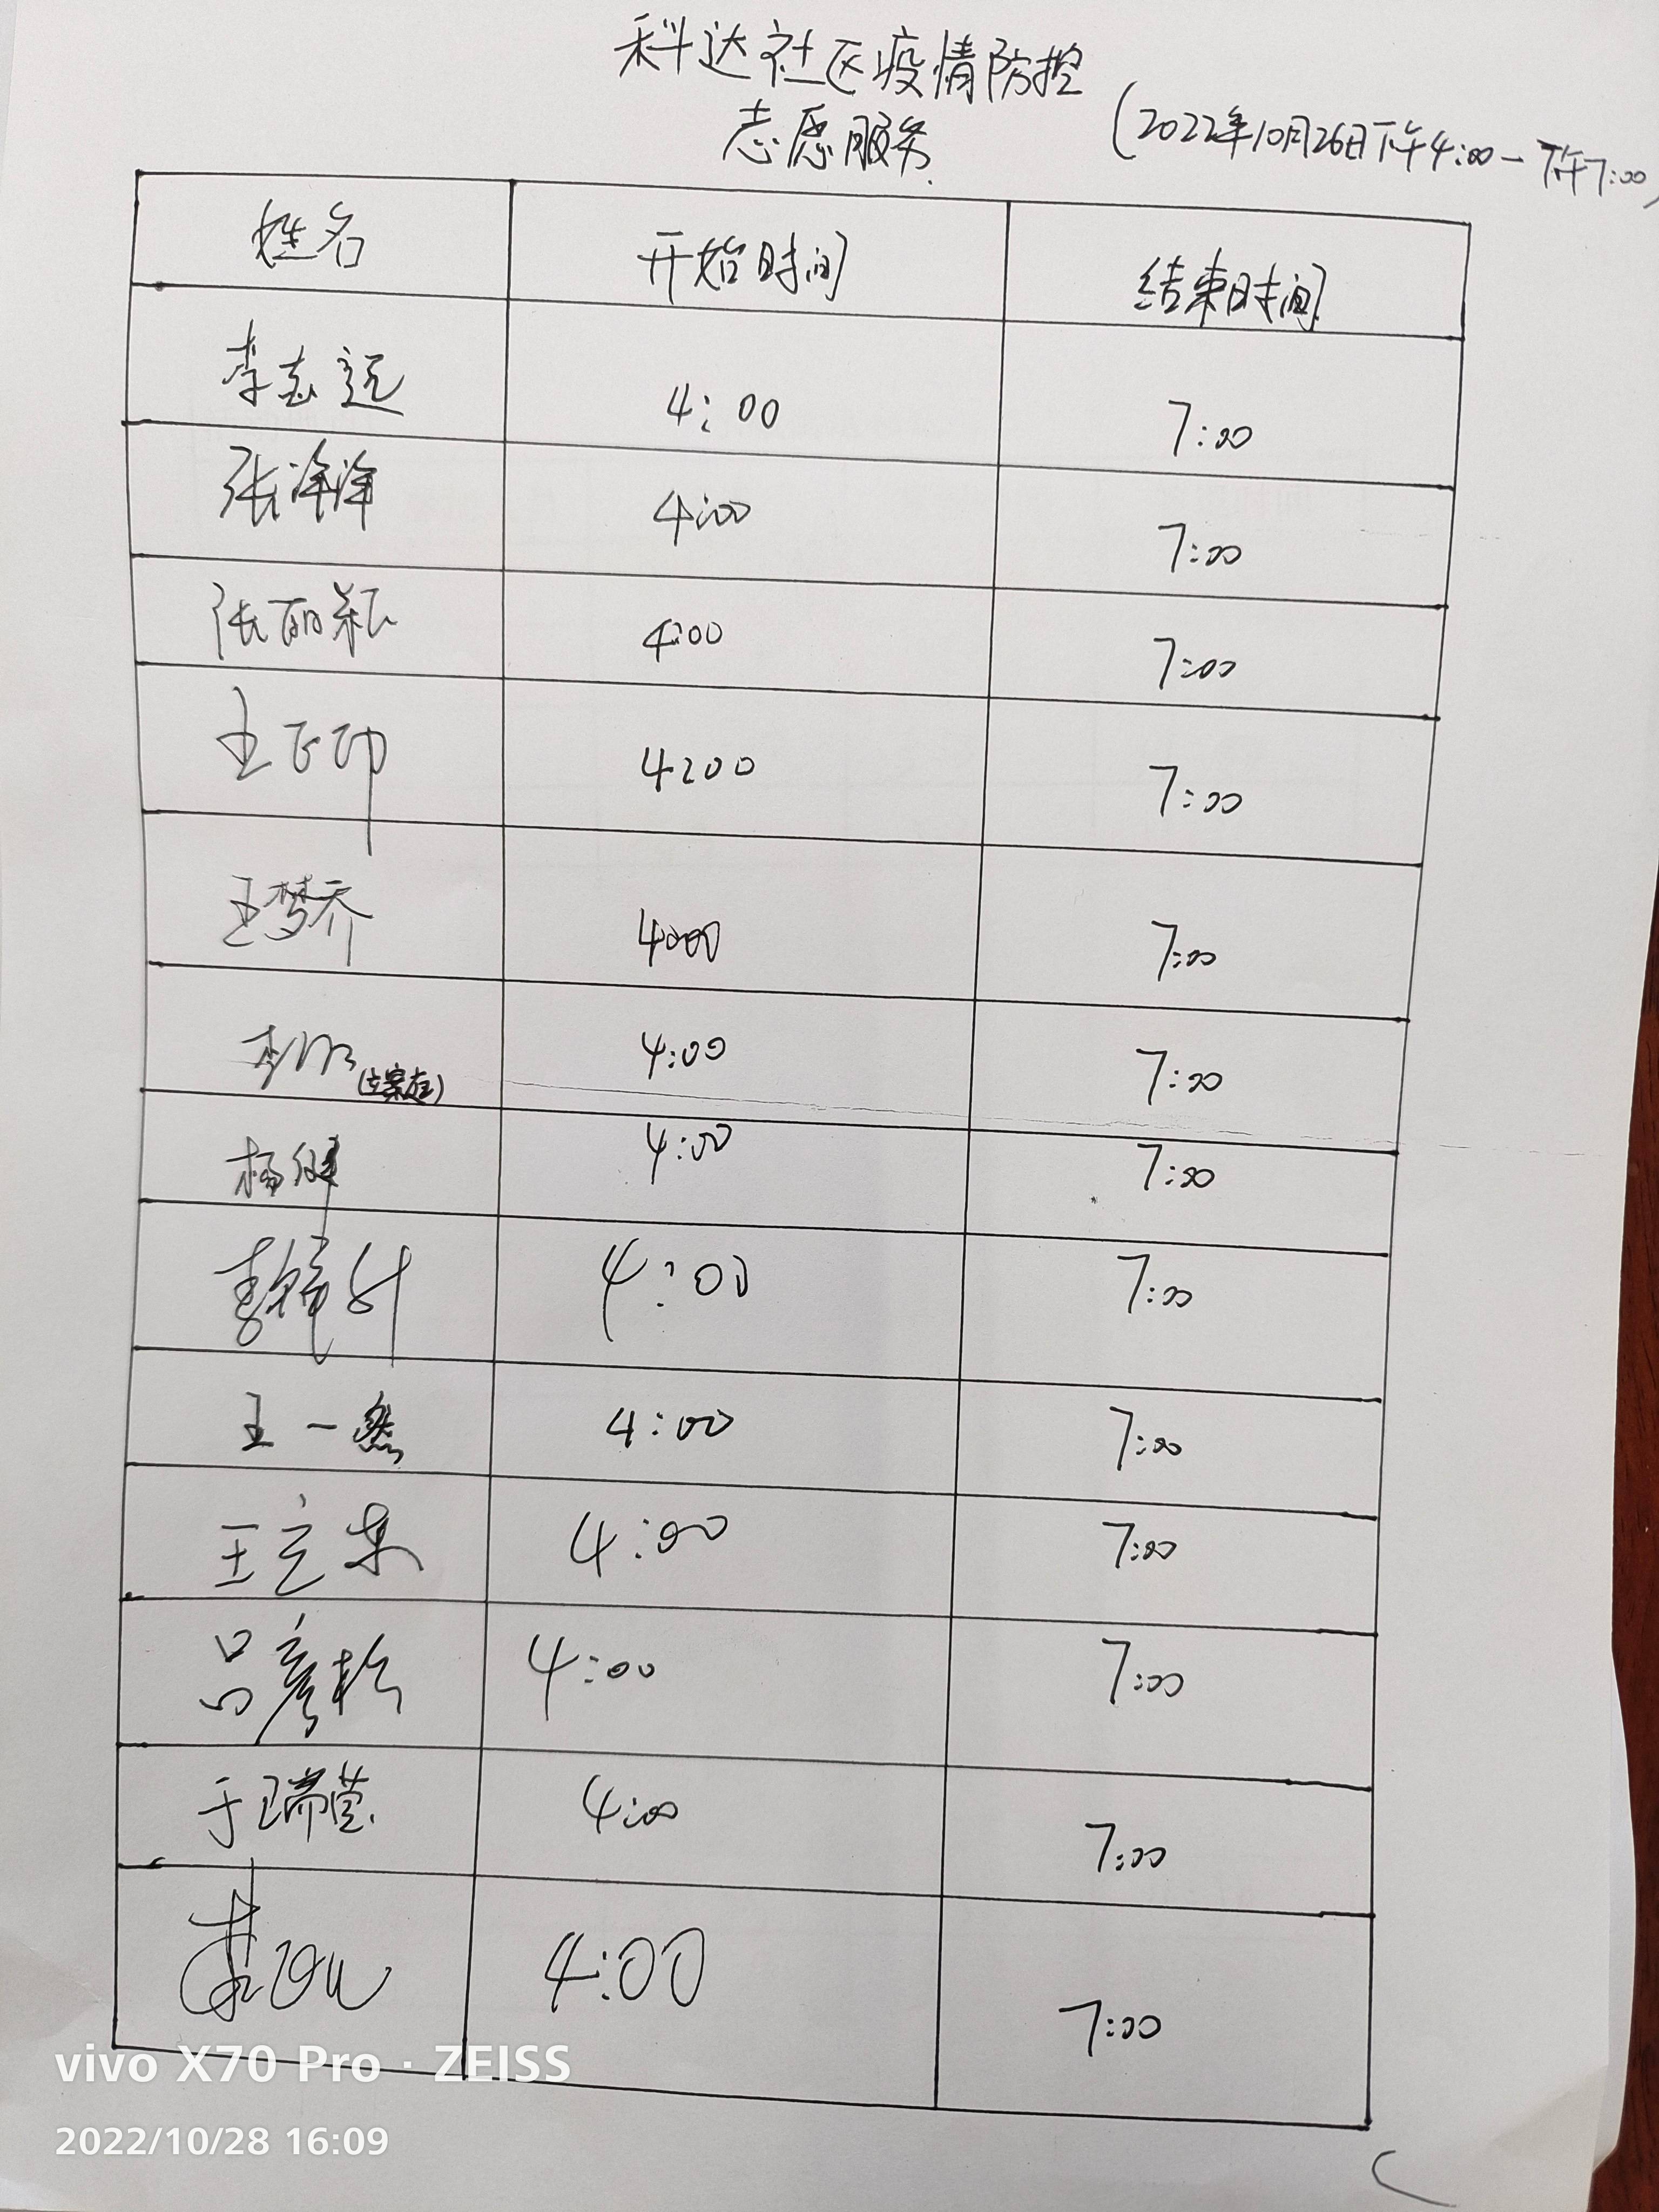 科达社区疫情防控
志愿服务
(2022年10月26日下午4:00一下午7:00)
姓名 开始时间 结束时间
李志远 4:00 7:00
张洋洋 4:00 7:00
张丽颖 4:00 7:00
王正印 4:00 7:00
王梦乔 4:00 7:00
李 (立案庭) 4:00 7:00
杨健 4:00 7:00
4:00 7:00
王一然 4:00 7:00
王立东 4:00 7:00
吕彦松 4:00 7:00
于瑞莹 4:00 7:00
4:00 7:00
vivo X70 Pro · ZEISS
2022/10/28 16:09